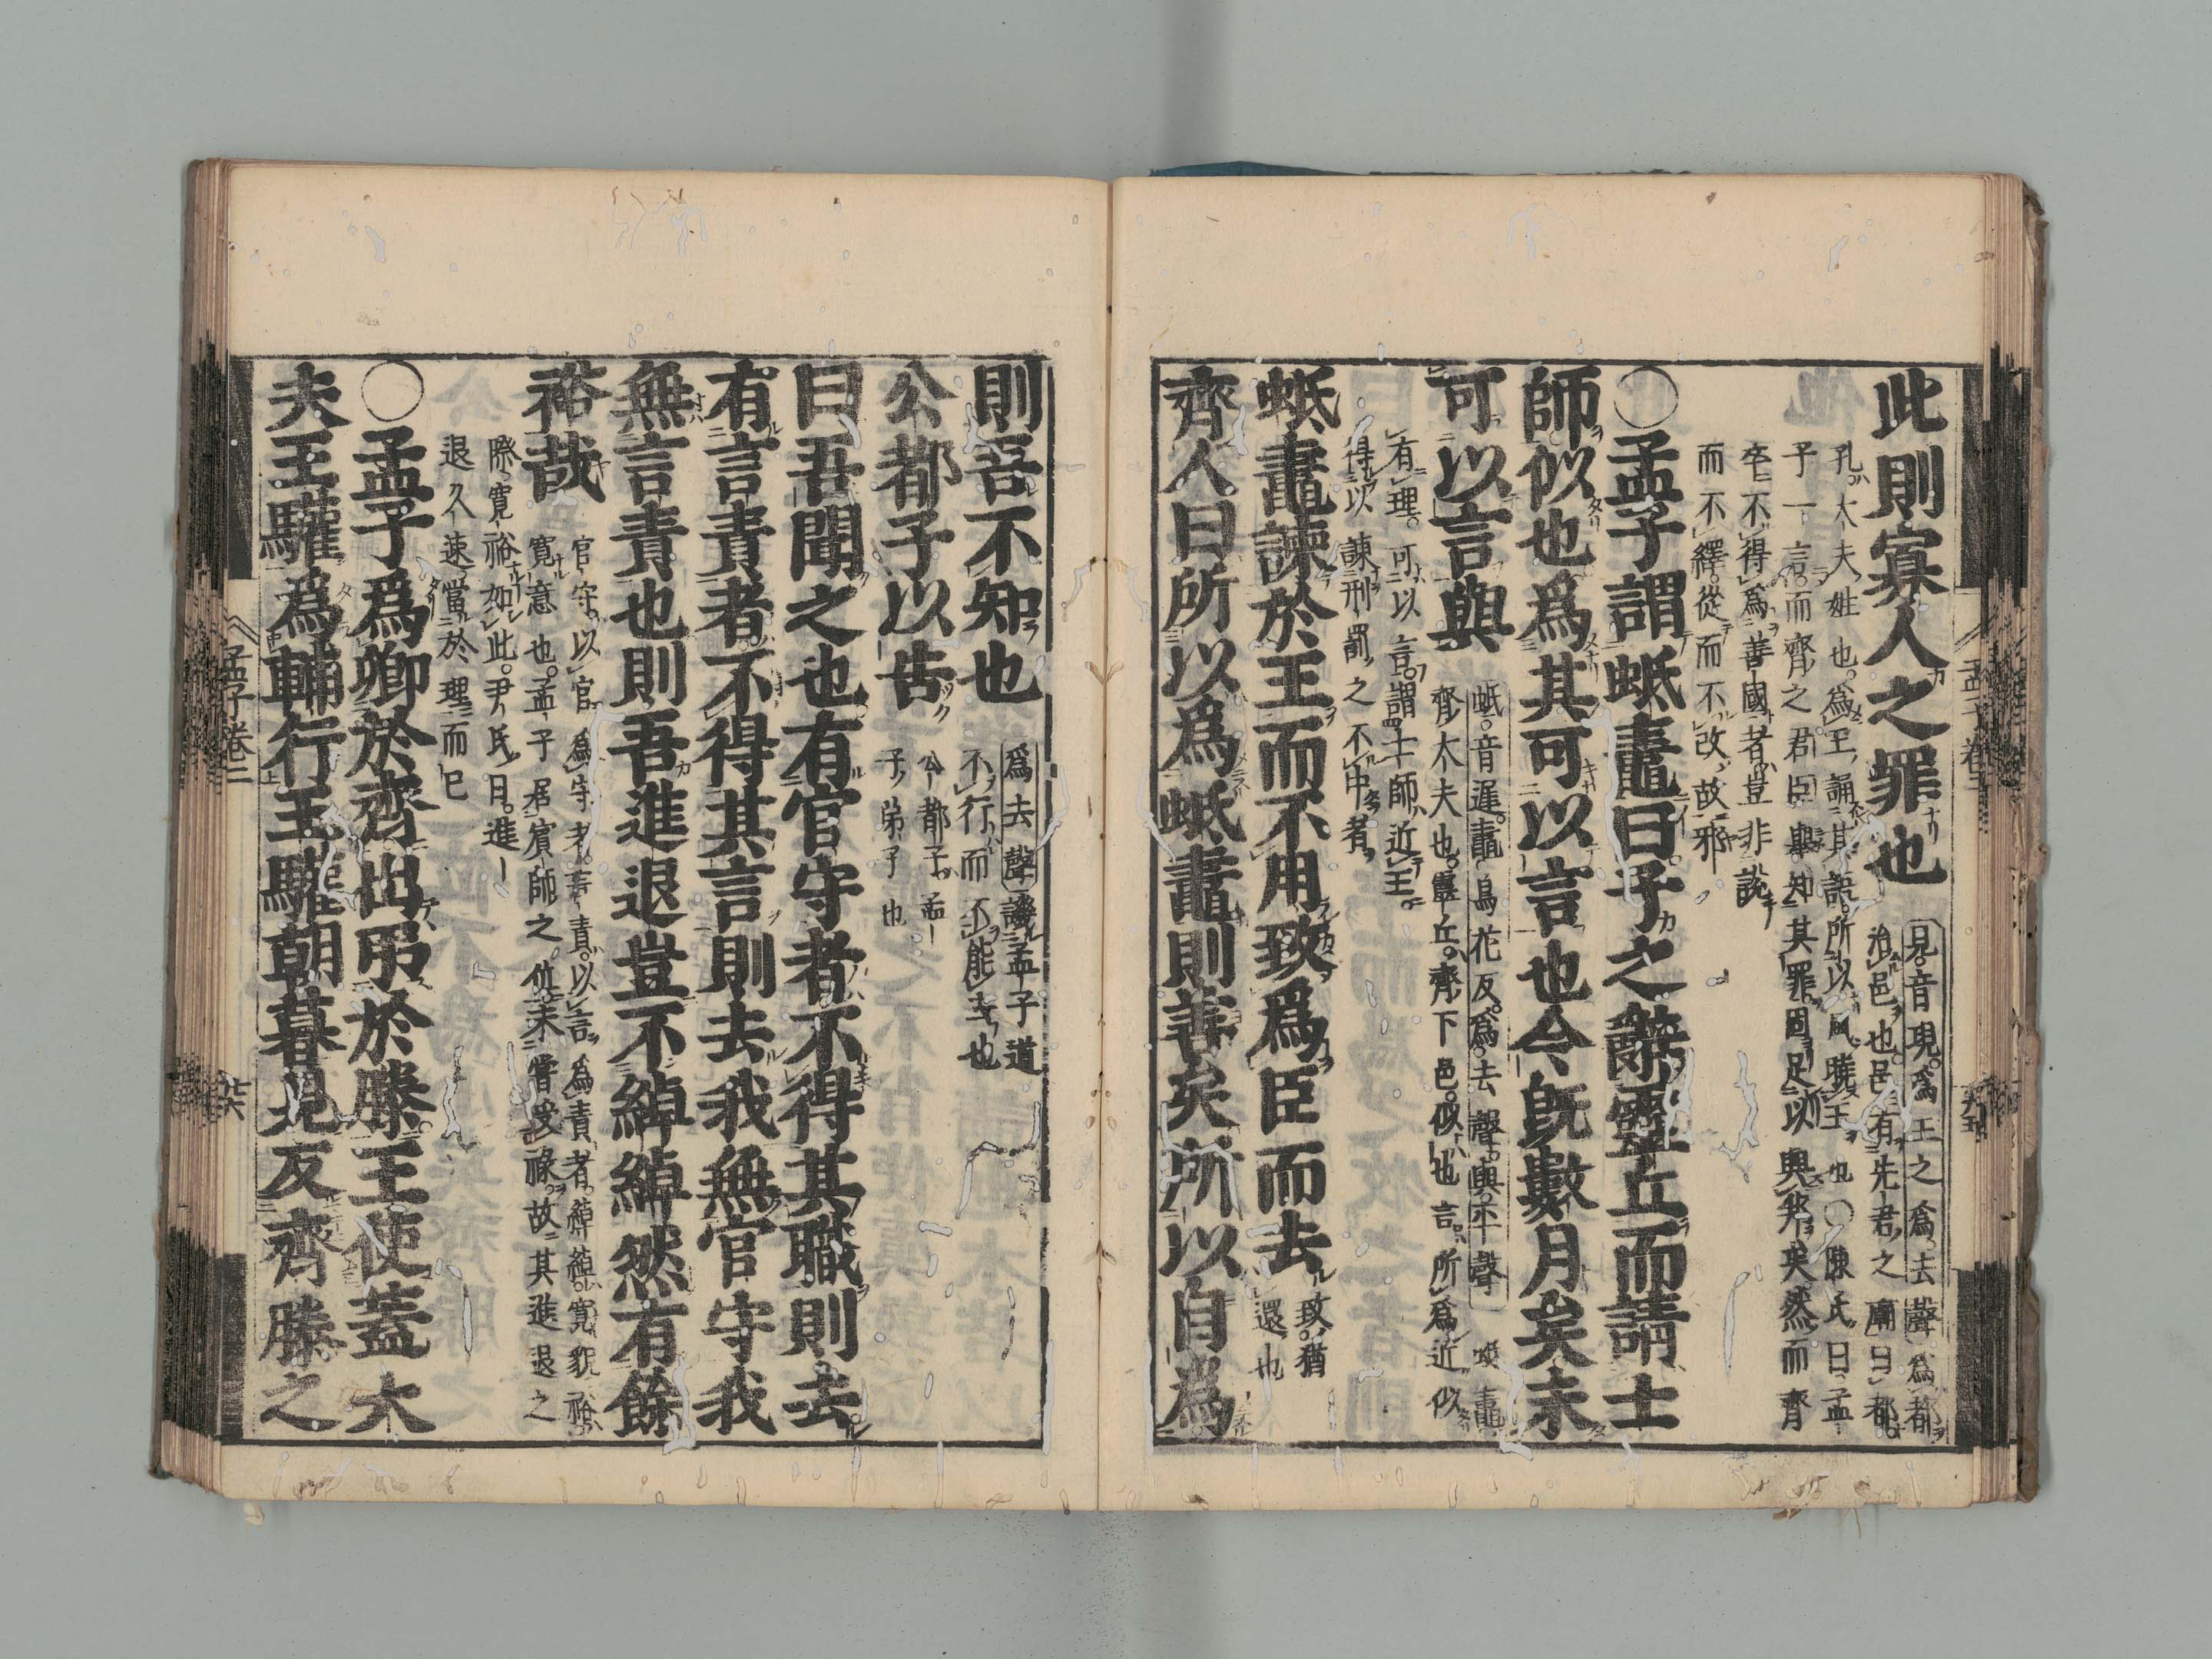 孟子卷二
廿五
此則寡人之罪也
見音現爲王之爲去聲爲都
治邑也邑有先君之廟曰都
孔大夫姓也爲王誦其語所以風曉王也○陳氏曰孟
子一言而齊之君臣舉知其罪固足以興邦矣然而齊
卒不得爲善國者豈非說
而不繹從而不改故邪
○孟子謂蚳鼃曰子之辭靈丘而請士
師似也爲其可以言也今既數月矣未
可以言與
蚳音遲鼃烏花反爲去聲與平聲 蚳鼃
齊大夫也靈丘齊下邑似也言所爲近似
有理可以言謂士師近王
得以諫刑罰之不中者
蚳鼃諫於王而不用致爲臣而去
致猶
還也
齊人曰所以爲蚳鼃則善矣所以自爲
則吾不知也
爲去聲譏孟子道
不行而不能去也
公都子以告
公都子孟
子弟子也
曰吾聞之也有官守者不得其職則去
有言責者不得其言則去我無官守我
無言責也則吾進退豈不綽綽然有餘
裕哉
官守以官爲守者言責以言爲責者綽綽寬貌裕
寬意也孟子居賓師之位未嘗受祿故其進退之
際寬裕如此尹氏曰進
退久速當於理而已
○孟子爲卿於齊出弔於滕王使蓋大
夫王驩爲輔行王驩朝暮見反齊滕之
孟子卷二
廿六